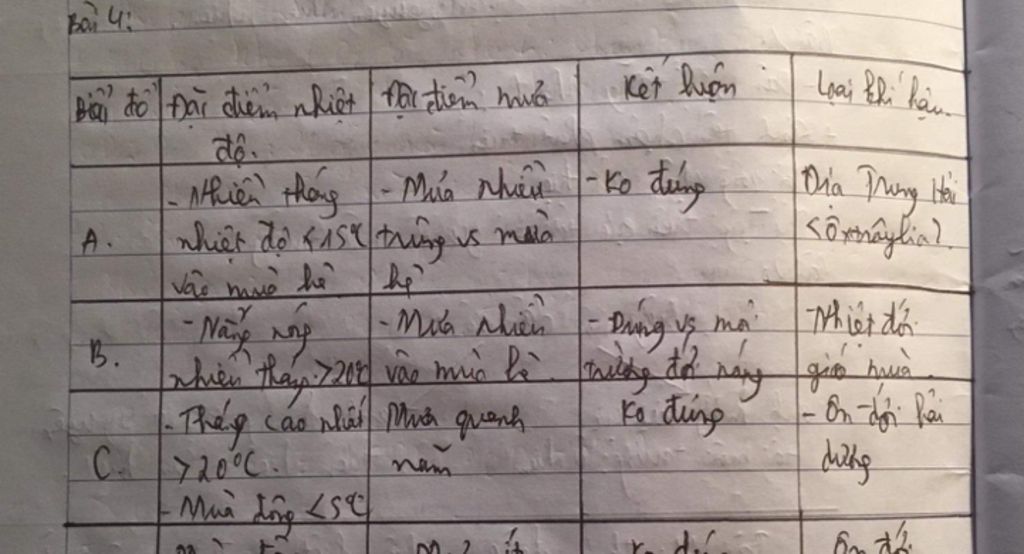 Bài 4:
Biểu đồ | Đặc điểm nhiệt độ. | Đặc điểm mưa | Kết luận | Loại khí hậu.
A. | - Nhiều tháng nhiệt độ <15°C vào mùa hè | - Mưa nhiều trùng vs mùa hè | - Ko đúng | Địa Trung Hải <Ôxtrâylia>.
B. | - Nắng nóng nhiều tháng >20°C | - Mưa nhiều vào mùa hè. | - Đúng vs môi trường đới nóng | - Nhiệt đới gió mùa.
C. | - Tháng cao nhất >20°C. - Mùa đông <5°C | Mưa quanh năm | Ko đúng | - Ôn đới hải dương